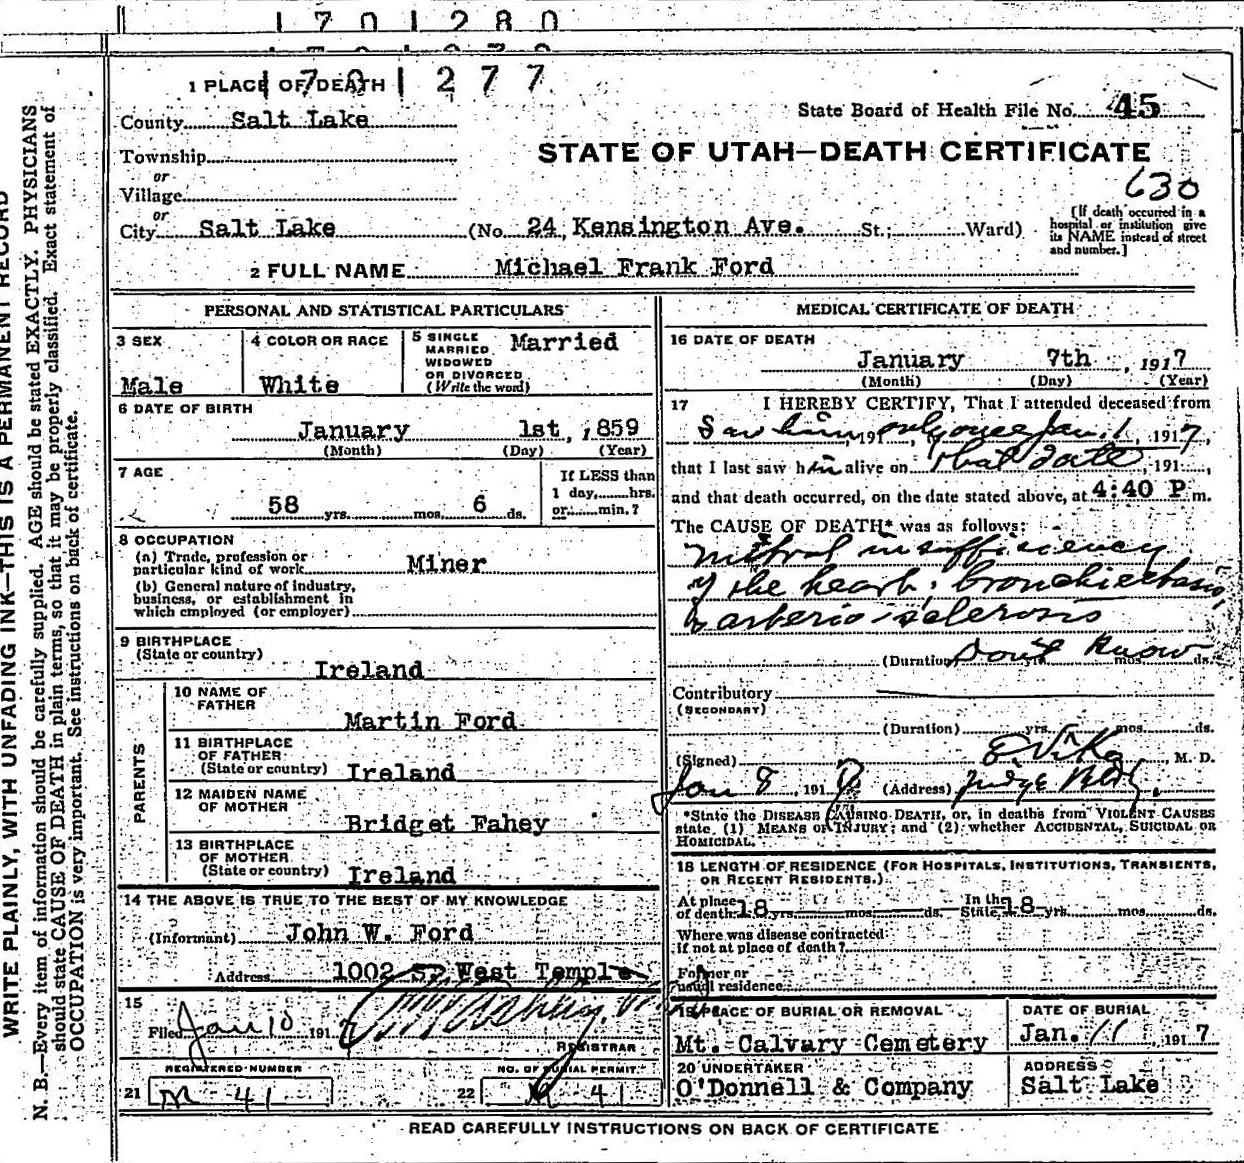 1 7 0 1 2 8 0
1 PLACE OF DEATH 1 7 0 1 2 7 7
County Salt Lake
State Board of Health File No. 45
Township
or
STATE OF UTAH—DEATH CERTIFICATE
Village
or
630
City Salt Lake (No. 24 Kensington Ave. St.; Ward)
[If death occurred in a
hospital or institution give
its NAME instead of street
and number.]
2 FULL NAME Michael Frank Ford
PERSONAL AND STATISTICAL PARTICULARS
3 SEX
Male
4 COLOR OR RACE
White
5 SINGLE
MARRIED
WIDOWED
OR DIVORCED
(Write the word)
Married
6 DATE OF BIRTH
January 1st, 1859
(Month) (Day) (Year)
7 AGE
58 yrs. mos. 6 ds.
If LESS than
1 day, hrs.
or min.?
8 OCCUPATION
(a) Trade, profession or
particular kind of work Miner
(b) General nature of industry,
business, or establishment in
which employed (or employer)
9 BIRTHPLACE
(State or country)
Ireland
PARENTS
10 NAME OF
FATHER
Martin Ford
11 BIRTHPLACE
OF FATHER
(State or country) Ireland
12 MAIDEN NAME
OF MOTHER
Bridget Fahey
13 BIRTHPLACE
OF MOTHER
(State or country) Ireland
14 THE ABOVE IS TRUE TO THE BEST OF MY KNOWLEDGE
(Informant) John W. Ford
Address 1002 S. West Temple
15
Filed Jan 10 191
REGISTRAR
REGISTERED NUMBER
21 M-41
NO. OF BURIAL PERMIT
22 M 41
MEDICAL CERTIFICATE OF DEATH
16 DATE OF DEATH
January 7th, 1917
(Month) (Day) (Year)
17 I HEREBY CERTIFY, That I attended deceased from
Saw him, 191 only once Jan. 1, 1917,
that I last saw him alive on that date, 191 ,
and that death occurred, on the date stated above, at 4:40 P m.
The CAUSE OF DEATH* was as follows:
mitral insufficiency
of the heart; bronchiectasis,
& arterio-sclerosis
(Duration) Don't yrs. Know mos. ds.
Contributory
(SECONDARY)
(Duration) yrs. mos. ds.
(Signed) , M. D.
Jan 8, 191 (Address) Judge Bldg.
*State the DISEASE CAUSING DEATH, or, in deaths from VIOLENT CAUSES
state (1) MEANS OF INJURY; and (2) whether ACCIDENTAL, SUICIDAL OR
HOMICIDAL.
18 LENGTH OF RESIDENCE (FOR HOSPITALS, INSTITUTIONS, TRANSIENTS,
OR RECENT RESIDENTS.)
At place of death 18 yrs. mos. ds. In the State 18 yrs. mos. ds.
Where was disease contracted
if not at place of death?
Former or
usual residence
19 PLACE OF BURIAL OR REMOVAL
Mt. Calvary Cemetery
DATE OF BURIAL
Jan. 11, 1917
20 UNDERTAKER
O'Donnell & Company
ADDRESS
Salt Lake
READ CAREFULLY INSTRUCTIONS ON BACK OF CERTIFICATE
WRITE PLAINLY, WITH UNFADING INK—THIS IS A PERMANENT RECORD
N. B.—Every item of information should be carefully supplied. AGE should be stated EXACTLY. PHYSICIANS
should state CAUSE OF DEATH in plain terms, so that it may be properly classified. Exact statement of
OCCUPATION is very important. See instructions on back of certificate.